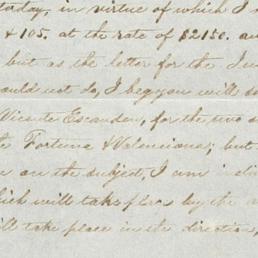 terday, in virtue of which I
& 105. at the rate of $2150. an
but as the letter for the
ould not do, I beg you will
Vicente Escandon, for the two
the Fortuna & Valenciana; but
on the subject, I am
hich will take place by the
ill take place in the direction,